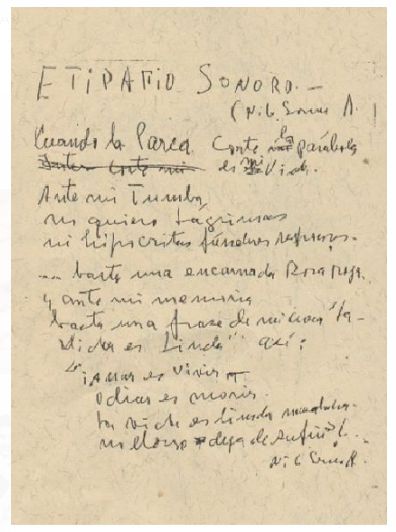 ETIPAFIO SONORO.-
(Ni G. Sonus A.
Cuando la Parca Corte la parábola
Antes corte mi de mi Vida.
Ante mi Tumba
no quiero Lágrimas
ni hipócritas fúnebres
... basta una encarnada Rosa roja.
y ante mi memoria
basta una frase de mi "la
vida es Linda" así:
"¡Amar es Vivir
Odiar es morir.
La vida es linda
no lloro deja de sufrir".